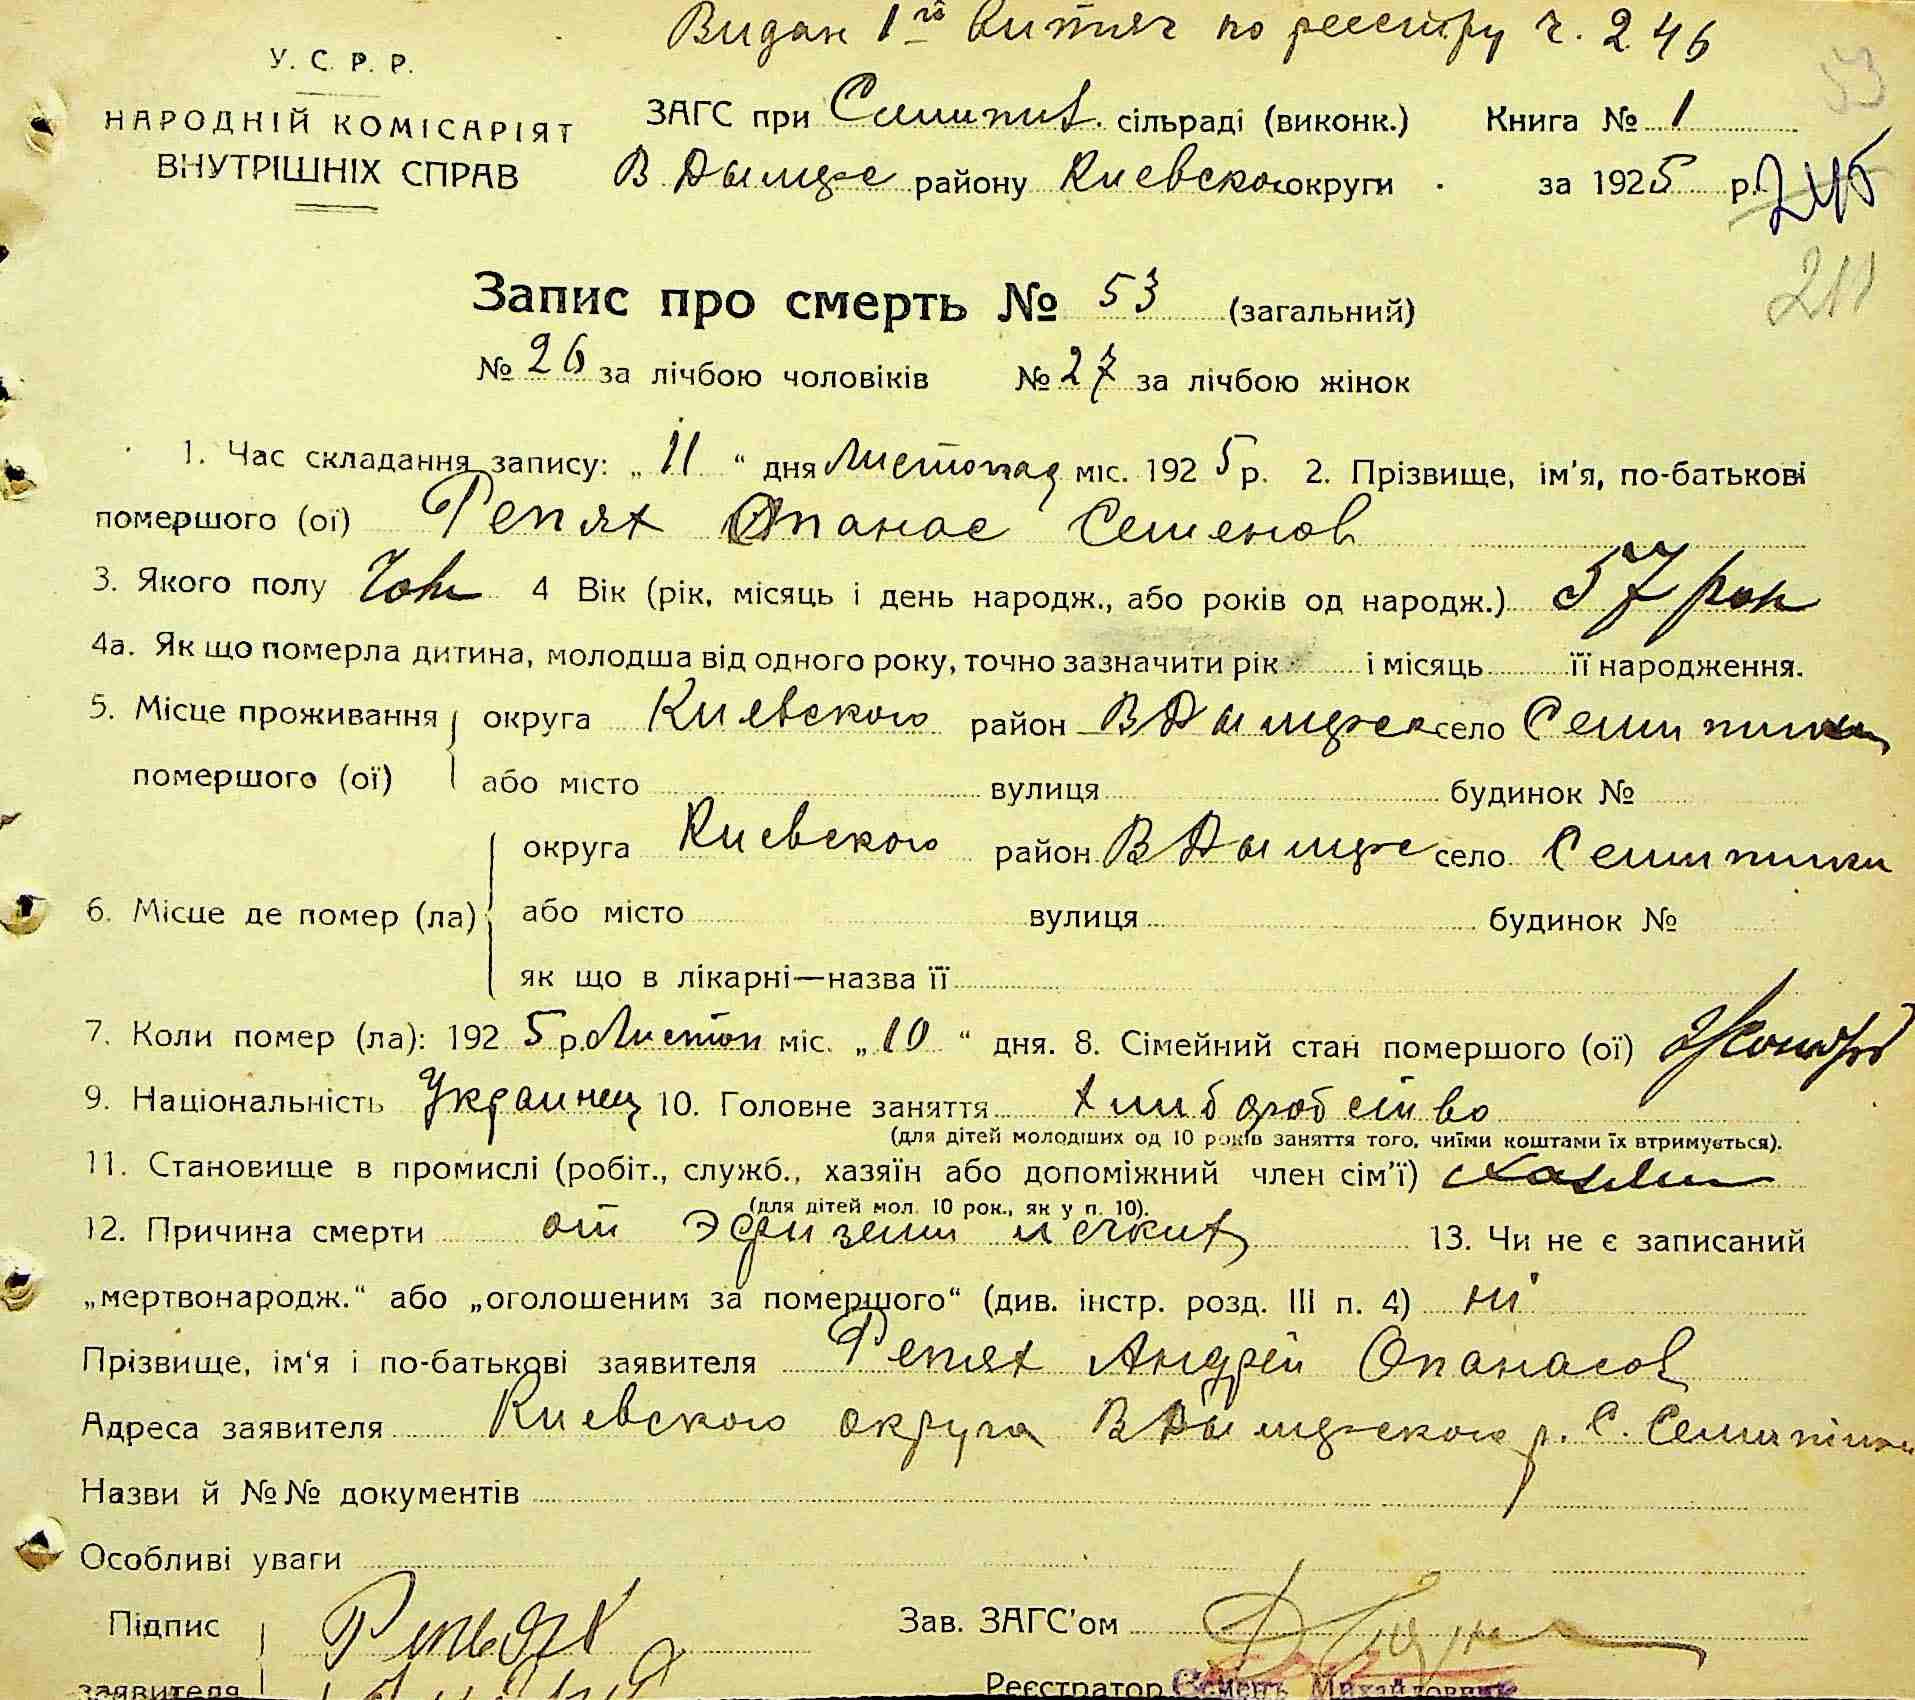 Видан 1го витяг по реестру ч. 246
53
У. С. Р. Р.
НАРОДНІЙ КОМІСАРІЯТ
ВНУТРІШНІХ СПРАВ
ЗАГС при сільраді (виконк.) Книга № 1
В Дымерс району Киевского округи за 1925 р.
245
211
Запис про смерть № 53 (загальний)
№ 26 за лічбою чоловіків № 27 за лічбою жінок
1. Час складання запису: „ 11 “ дня Листопад міс. 1925 р. 2. Прізвище, ім'я, по-батькові
помершого (ої) Репях Опанас Семенов
3. Якого полу Чол 4 Вік (рік, місяць і день народж., або років од народж.) 57 рок
4а. Як що померла дитина, молодша від одного року, точно зазначити рік і місяць її народження.
5. Місце проживання помершого (ої) округа Киевского район В Дымерск село
або місто вулиця будинок №
6. Місце де помер (ла) округа Киевского район В Дымерс село
або місто вулиця будинок №
як що в лікарні—назва її
7. Коли помер (ла): 1925 р. Листоп міс. „ 10 “ дня. 8. Сімейний стан помершого (ої)
9. Національність Украинец 10. Головне заняття хлиборобство
(для дітей молодших од 10 років заняття того, чиїми коштами їх втримується).
11. Становище в промислі (робіт., служб., хазяїн або допоміжний член сім'ї) хазяин
(для дітей мол. 10 рок., як у п. 10).
12. Причина смерти от 13. Чи не є записаний
„мертвонародж.“ або „оголошеним за помершого“ (див. інстр. розд. III п. 4) ні
Прізвище, ім'я і по-батькові заявителя Репях Андрей Опанасов
Адреса заявителя Киевского округа В Дымерского р. С.
Назви й №№ документів
Особливі уваги
Підпис заявителя Зав. ЗАГС'ом
Реєстратор Семень Михайлович